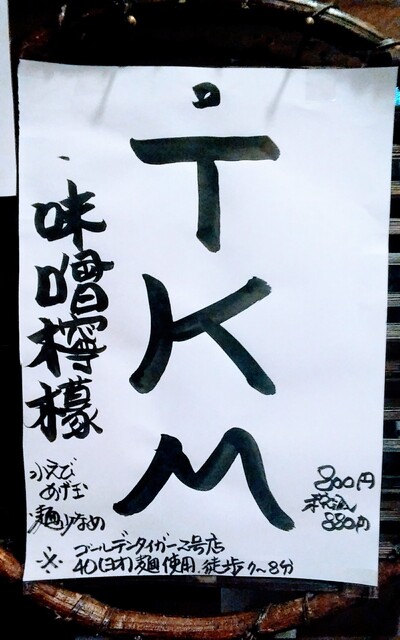 の
T
K
M
味噌檸檬
小えび
あげ玉
麺少なめ
800円
税込
880円
※ ゴールデンタイガー2号店
麺使用.徒歩7〜8分